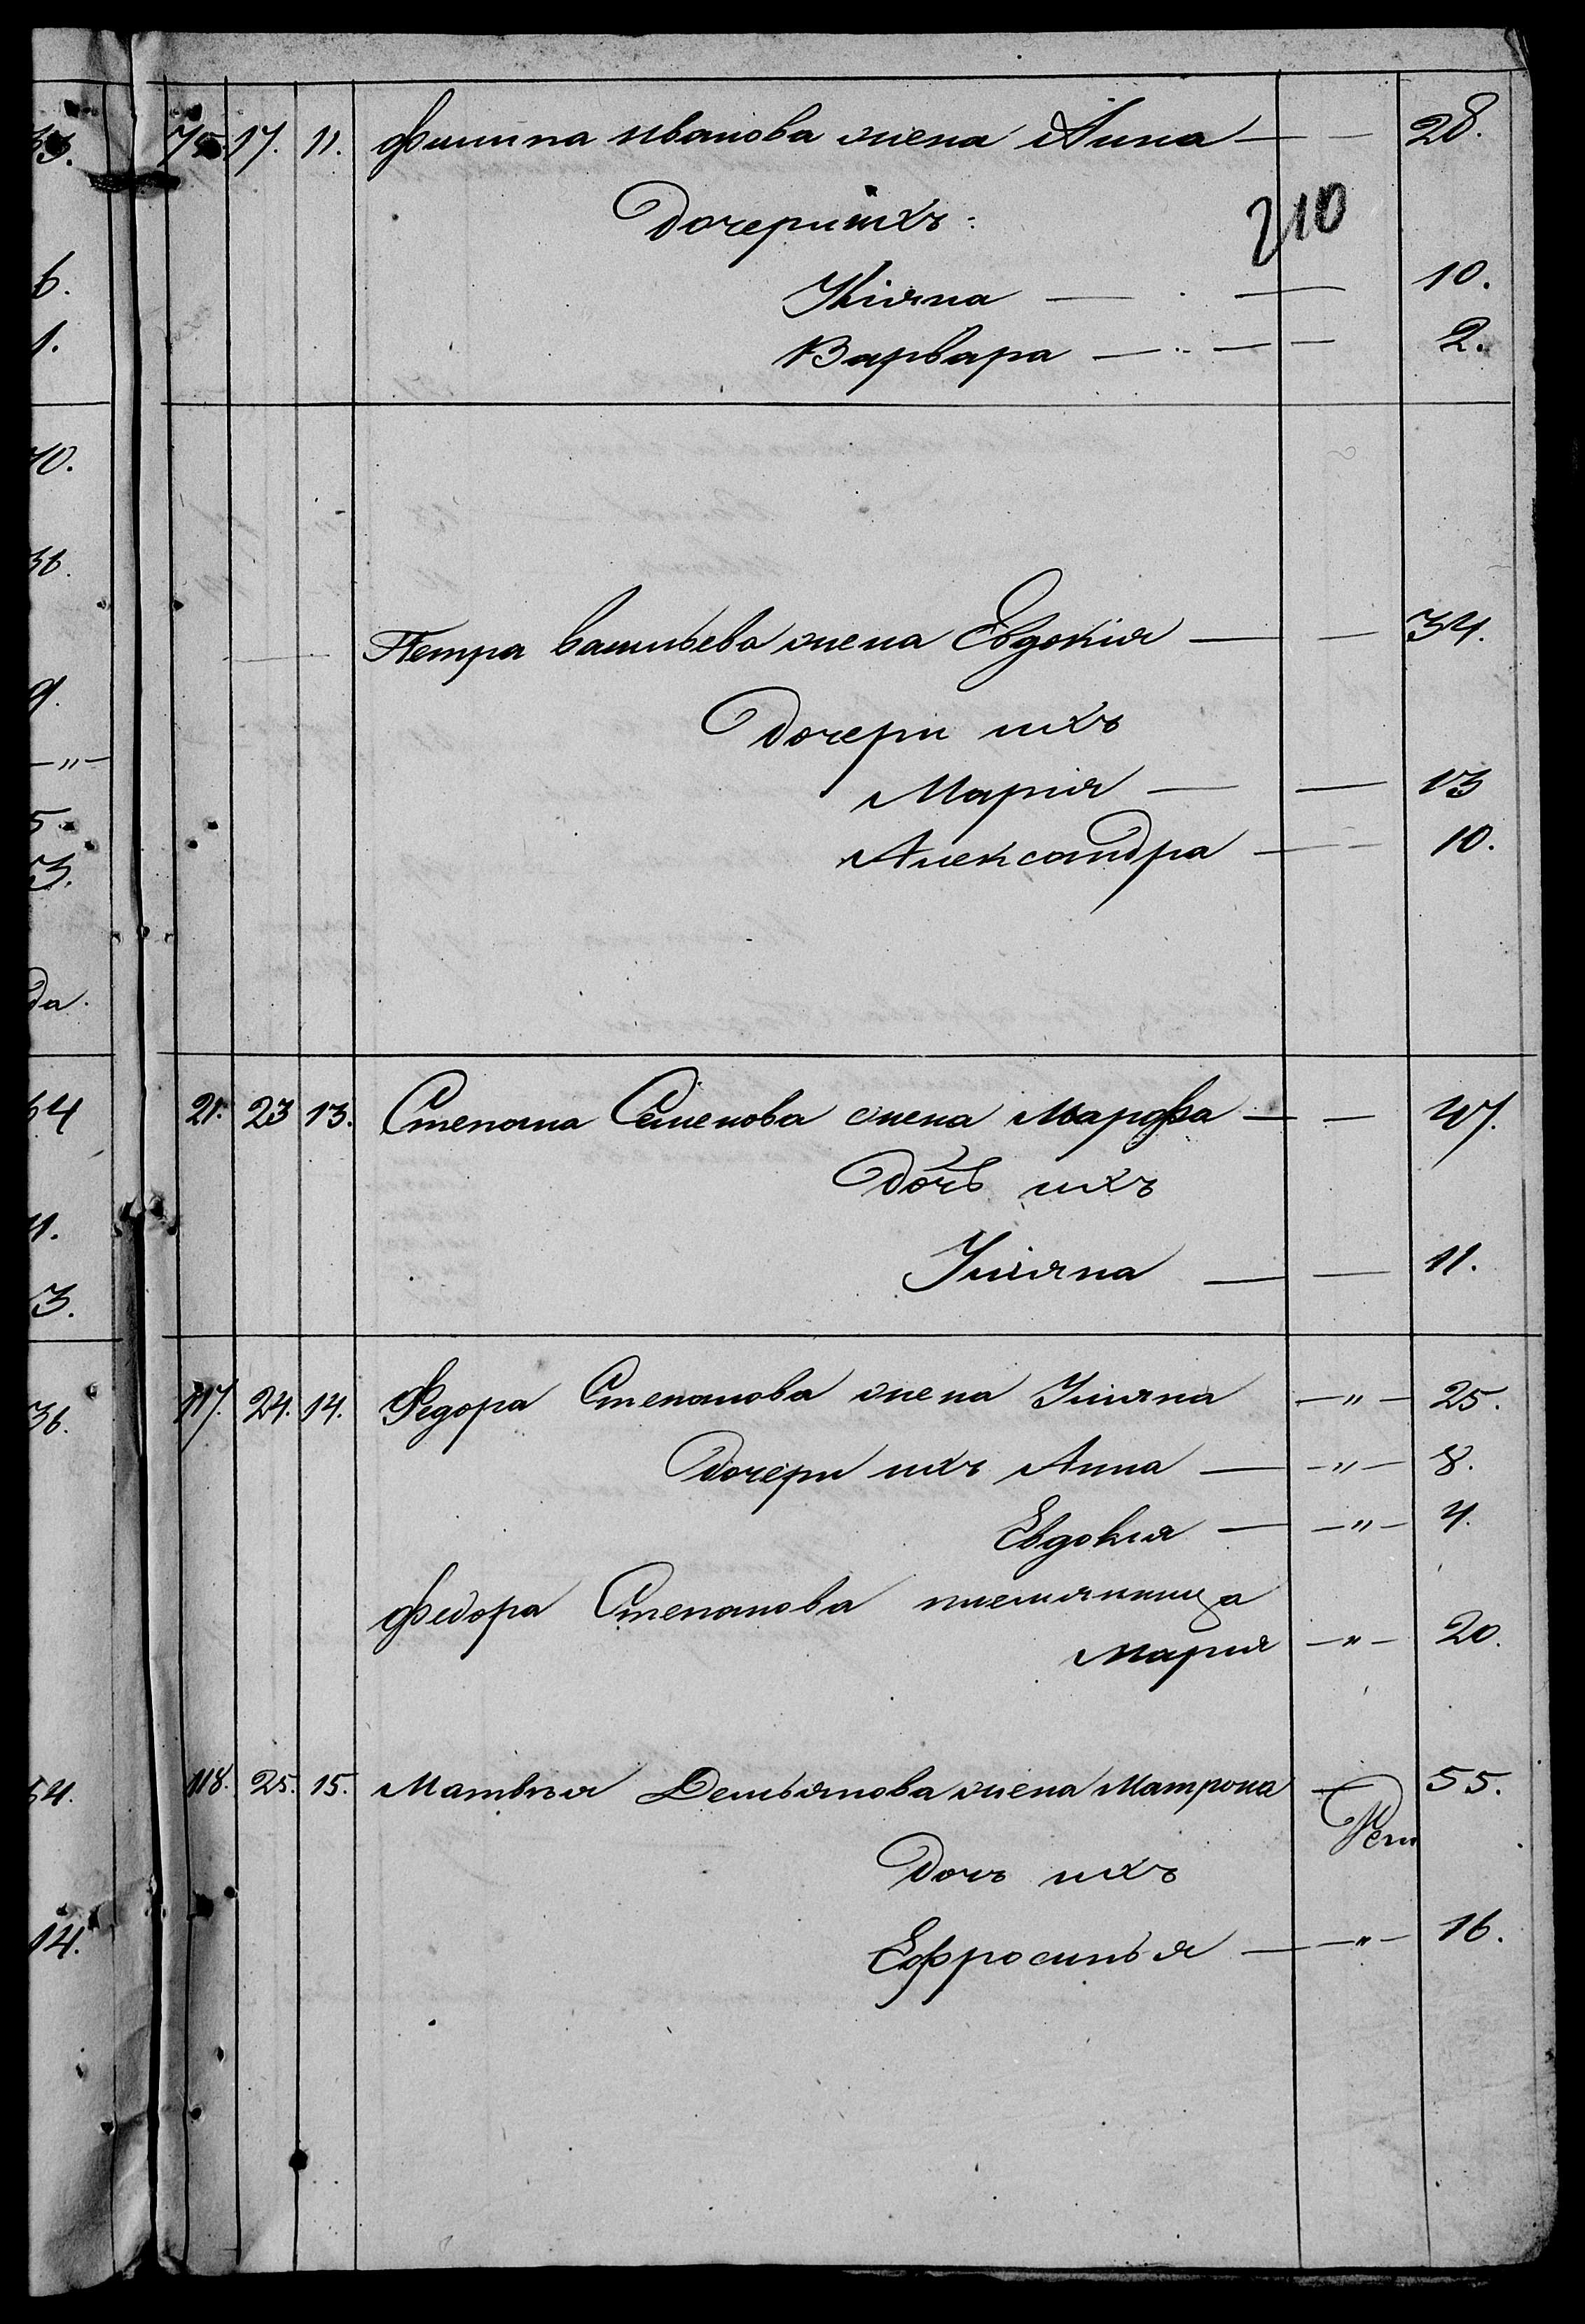 33.
6.
1.
10.
36.
9.
— " —
5.
3.
да.
11.
3.
36.
54.
14.
75. 17. 11. Филипа Иванова жена Анна — — 28.
210
Дочери ихъ:
Уліяна — — 10.
Варвара — — 2.
Петра Васильева жена Евдокія — — 34.
Дочери ихъ
Марія — — 13
Александра — — 10.
21. 23 13. Степана Семенова жена Марфа — — 47.
Дочь ихъ
Уліяна — — 11.
117. 24. 14. Федора Степанова жена Улияна — " — 25.
Дочери ихъ Анна — — " — 8.
Евдокия — — " — 4.
Федора Степанова племянница
Мария — " — 20.
118. 25. 15. Матвѣя Демьянова жена Матрона — 55.
Дочь ихъ
Ефросинья — — " — 16.